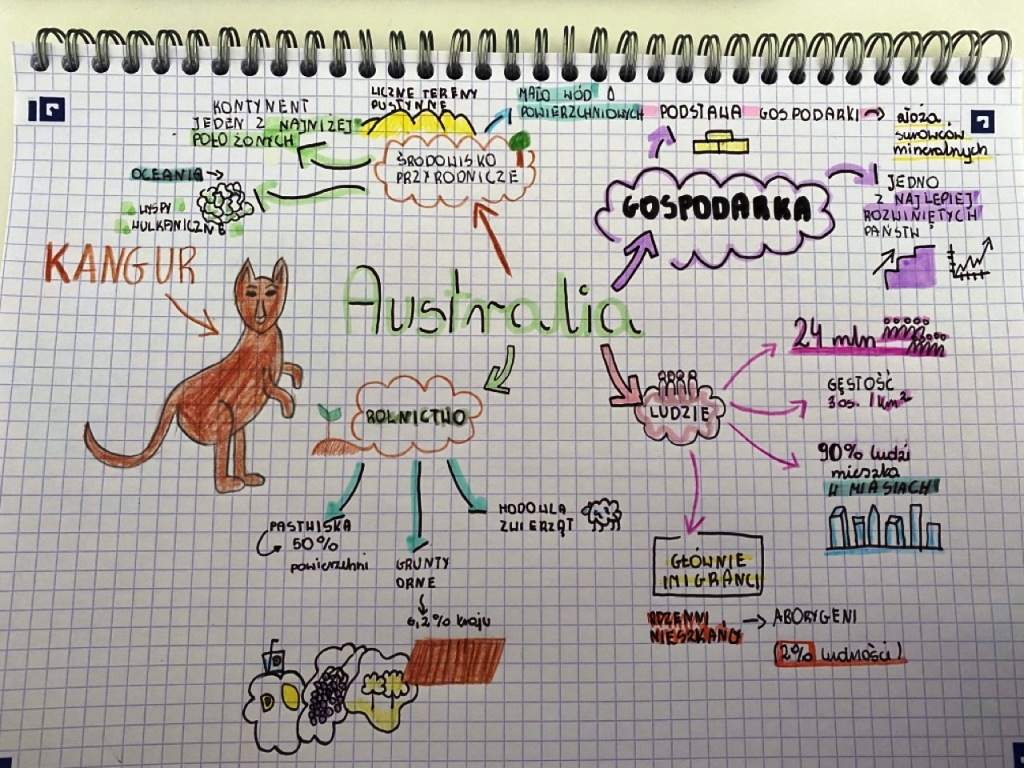 LICZNE TERENY
PUSTYNNE
MAŁO WÓD
POWIERZCHNIOWYCH
KONTYNENT
JEDEN Z NAJNIŻEJ
POŁOŻONYCH
ŚRODOWISKO
PRZYRODNICZE
OCEANIA →
WYSPY
WULKANICZNE
PODSTAWA GOSPODARKI →
złoża
surowców
mineralnych
GOSPODARKA
JEDNO
Z NAJLEPIEJ
ROZWINIĘTYCH
PAŃSTW
KANGUR
Australia
24 mln
LUDZIE
GĘSTOŚĆ
3 os. / km²
90% ludzi
mieszka
W MIASTACH
GŁÓWNIE
IMIGRANCI
RDZENNI
MIESZKAŃCY
→ ABORYGENI
(2% ludności)
ROLNICTWO
PASTWISKA
50%
powierzchni
GRUNTY
ORNE
6,2% kraju
HODOWLA
ZWIERZĄT